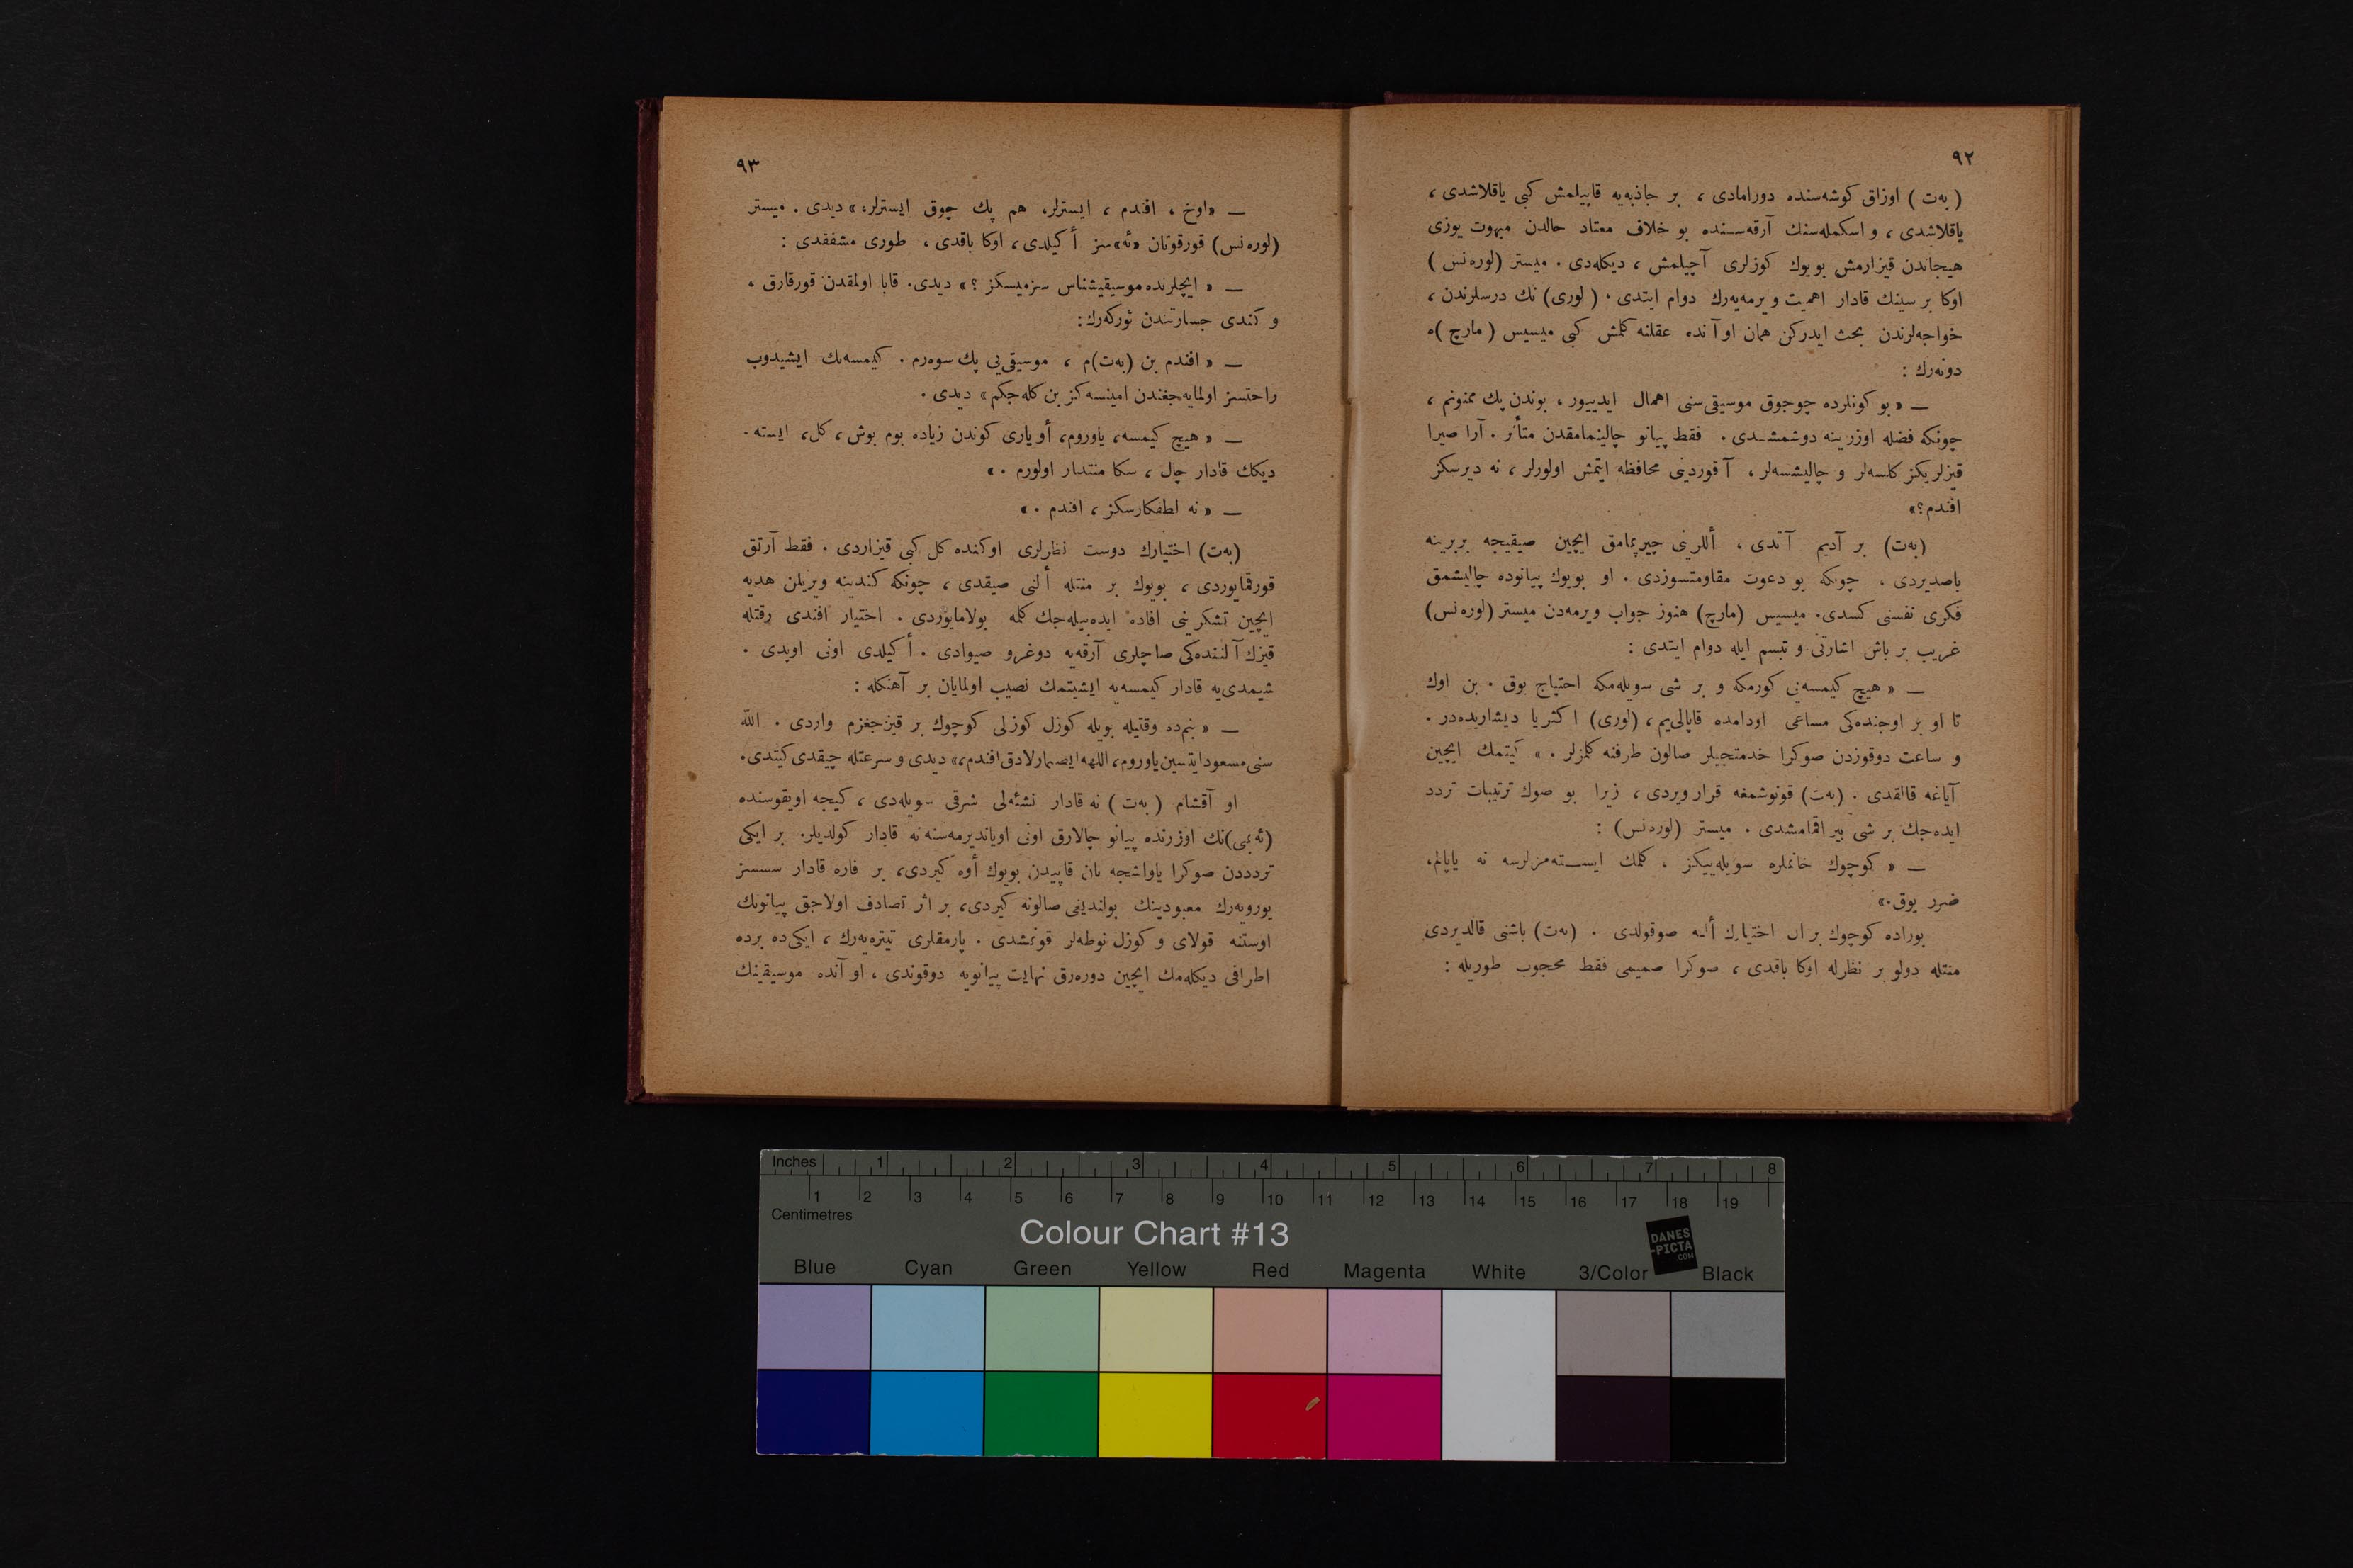 ٩٢
(بەت) اوزاق كوشەسندە دورامادی، بر جاذبەیە قاپیلمش كبی یاقلاشدی،
یاقلاشدی، و اسكملەسنك آرقەسندە بو خلاف معتاد حالدن مبهوت یوزی
هیجاندن قیزارمش بویوك كوزلری آچیلمش، دیكلەدی. میستر (لورەنس)
اوكا بر سینك قادار اهمیت ویرمەیەرك دوام ایتدی، (لوری) نك درسلرندن،
خواجەلرندن بحث ایدركن همان او آندە عقلنە كلمش كبی میسیس (مارچ)ە
دونەرك:
— «بو كونلردە چوجوق موسیقی‌سنی اهمال ایدییور، بوندن پك ممنونم،
چونكە فضلە اوزرینە دوشمشدی. فقط پیانو چالینمامقدن متأثر. آرا صیرا
قیزلریكز كلسەلر و چالیشسەلر، آقوردینی محافظە ایتمش اولورلر، نە دیرسكز
افندم؟»
(بەت) بر آدیم آتدی، أللرینی چیرپمامق ایچین صیقیجە بربرینە
باصدیردی، چونكە بو دعوت مقاومتسوزدی. او بویوك پیانودە چالیشمق
فكری نفسنی كسدی. میسیس (مارچ) هنوز جواب ویرمەدن میستر (لورەنس)
غریب بر باش اشارتی و تبسم ایلە دوام ایتدی:
— «هیچ كیمسەیی كورمكە و بر شی سویلەمكە احتیاج یوق. بن اوك
تا او بر اوجندەكی مساعی اودامدە قاپالی‌یم، (لوری) اكثریا دیشاریدەدر.
و ساعت دوقوزدن صوكرا خدمتجیلر صالون طرفنە كلمزلر.» كیتمك ایچین
آیاغە قالقدی. (بەت) قونوشمغە قرار ویردی، زیرا بو صوك ترتیبات تردد
ایدەجك بر شی بیراقمامشدی. میستر (لورەنس):
— «كوچوك خانملرە سویلەییكز، كلمك ایستەمزلرسە نە یاپالم،
ضرر یوق.»
بورادە كوچوك بر ال اختیارك ألیە صوقولدی. (بەت) باشنی قالدیردی
منتلە دولو بر نظرلە اوكا باقدی، صوكرا صمیمی فقط محجوب طوریلە:
٩٣
— «اوخ، افندم، ایسترلر، هم پك چوق ایسترلر،» دیدی. میستر
(لورەنس) قورقوتان «نە» سز أكیلدی، اوكا باقدی، طوری مشفقدی:
— «ایچلرندە موسیقیشناس سزمیسكز؟» دیدی. قابا اولمقدن قورقارق،
و كندی جسارتندن ئوركەرك:
— «افندم بن (بەت)م، موسیقی‌یی پك سوەرم. كیمسەنك ایشیدوب
راحتسز اولمایەجغندن امینسەكز بن كلەجكم» دیدی.
— «هیچ كیمسە، یاوروم، أو یاری كوندن زیادە بوم بوش، كل، ایستە-
دیكك قادار چال، سكا منتدار اولورم.»
— «نە لطفكارسكز، افندم.»
(بەت) اختیارك دوست نظرلری اوكندە كل كبی قیزاردی. فقط آرتق
قورقمایوردی، بویوك بر منتلە ألنی صیقدی، چونكە كندینە ویریلن هدیە
ایچین تشكرینی افادە ایدەبیلەجك كلمە بولامایوردی. اختیار افندی رقتلە
قیزك آلنندەكی صاچلری آرقەیە دوغرو صیوادی. أكیلدی اونی اوپدی.
شیمدی‌یە قادار كیمسەیە ایشیتمك نصیب اولمایان بر آهنكلە:
— «بنم‌دە وقتیلە بویلە كوزل كوزلی كوچوك بر قیزجغزم واردی. اللە
سنی مسعود ایتسین یاوروم، اللهە ایصمارلادق افندم،» دیدی و سرعتلە چیقدی كیتدی.
او آقشام (بەت) نە قادار نشئەلی شرقی سویلەدی، كیجە اویقوسندە
(ئەیمی)نك اوزرندە پیانو چالارق اونی اویاندیرمەسنە نە قادار كولدیلر. بر ایكی
ترددددن صوكرا یاواشجە یان قاپیدن بویوك أوە كیردی، بر فارە قادار سسسز
یورویەرك معبودینك بولندیغی صالونە كیردی، بر اثر تصادف اولاجق پیانونك
اوستنە قولای و كوزل نوطەلر قونمشدی. پارمقلری تیترەیەرك، ایكی‌دە بردە
اطرافی دیكلەمك ایچین دورەرق نهایت پیانویە دوقوندی، او آندە موسیقینك
Inches 1 2 3 4 5 6 7 8
1 2 3 4 5 6 7 8 9 10 11 12 13 14 15 16 17 18 19
Centimetres
Colour Chart #13
DANES
-PICTA
.COM
Blue Cyan Green Yellow Red Magenta White 3/Color Black